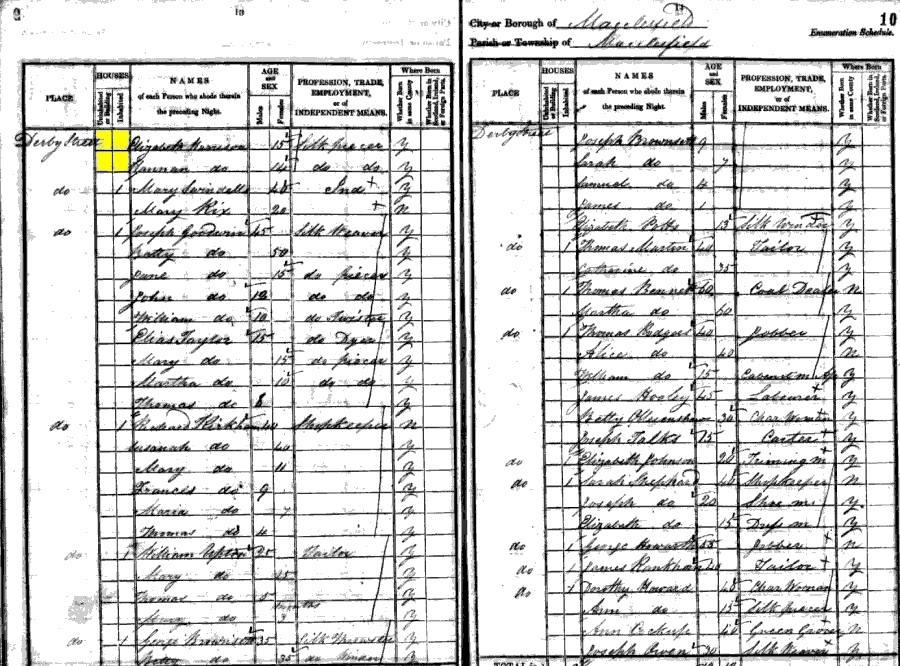 9
10
PLACE HOUSES Uninhabited or Building Inhabited NAMES of each Person who abode therein the preceding Night. AGE and SEX Males Females PROFESSION, TRADE, EMPLOYMENT, or of INDEPENDENT MEANS. Where Born Whether Born in same County Whether Born in Scotland, Ireland, or Foreign Parts.
Derby Street Elizabeth Harrison 15 Silk piecer y
Hannah do 14 do do y
do 1 Mary Swindells 48 Ind y
Mary Rix 20 n
do 1 Joseph Goodwin 45 Silk Weaver y
Betty do 50 y
Jane do 15 do piecer y
John do 12 do do y
William do 10 do Twister y
Elias Taylor 15 do Dyer y
Mary do 15 do piecer y
Martha do 10 do do y
Thomas do 8 y
do 1 Richard Kirkham 40 Shopkeeper n
Susanah do 40 y
Mary do 11 y
Frances do 9 y
Maria do 7 y
Thomas do 4 y
do 1 William Upton 25 Tailor y
Mary do 25 y
Thomas do 5 y
do 3 months y
do 1 George 35 Silk y
Betty do 35 do y
14
City or Borough of Macclesfield
Parish or Township of Macclesfield
10
Enumeration Schedule.
PLACE HOUSES Uninhabited or Building Inhabited NAMES of each Person who abode therein the preceding Night. AGE and SEX Males Females PROFESSION, TRADE, EMPLOYMENT, or of INDEPENDENT MEANS. Where Born Whether Born in same County Whether Born in Scotland, Ireland, or Foreign Parts.
Derby Street Joseph 9 y
Sarah do 7 y
Samuel do 4 y
James do 1 y
Elizabeth Potts 15 Silk y
do 1 Thomas Martin 40 Tailor y
Catharine do 35 y
do 1 Thomas Bennett 60 Coal Dealer n
Martha do 60 y
do 1 Thomas Rodgers 40 Jobber y
Alice do 40 n
William do 15 Cabinet m Ap y
James Hooley 45 Labourer y
Betty 30 Char Woman y
Joseph Talks 75 Carter y
do 1 Elizabeth Johnson 20 Triming m y
do 1 Sarah Shephard 40 Shopkeeper n
Joseph do 20 Shoe m y
Elizabeth do 15 Dress m y
do 1 George Howarth Jobber n
do 1 James 40 Tailor y
do 1 Dorothy Howard 40 Char Woman y
Ann do 15 Silk piecer y
Ann 40 Green Grocer n
Joseph Owen 30 Silk Weaver y